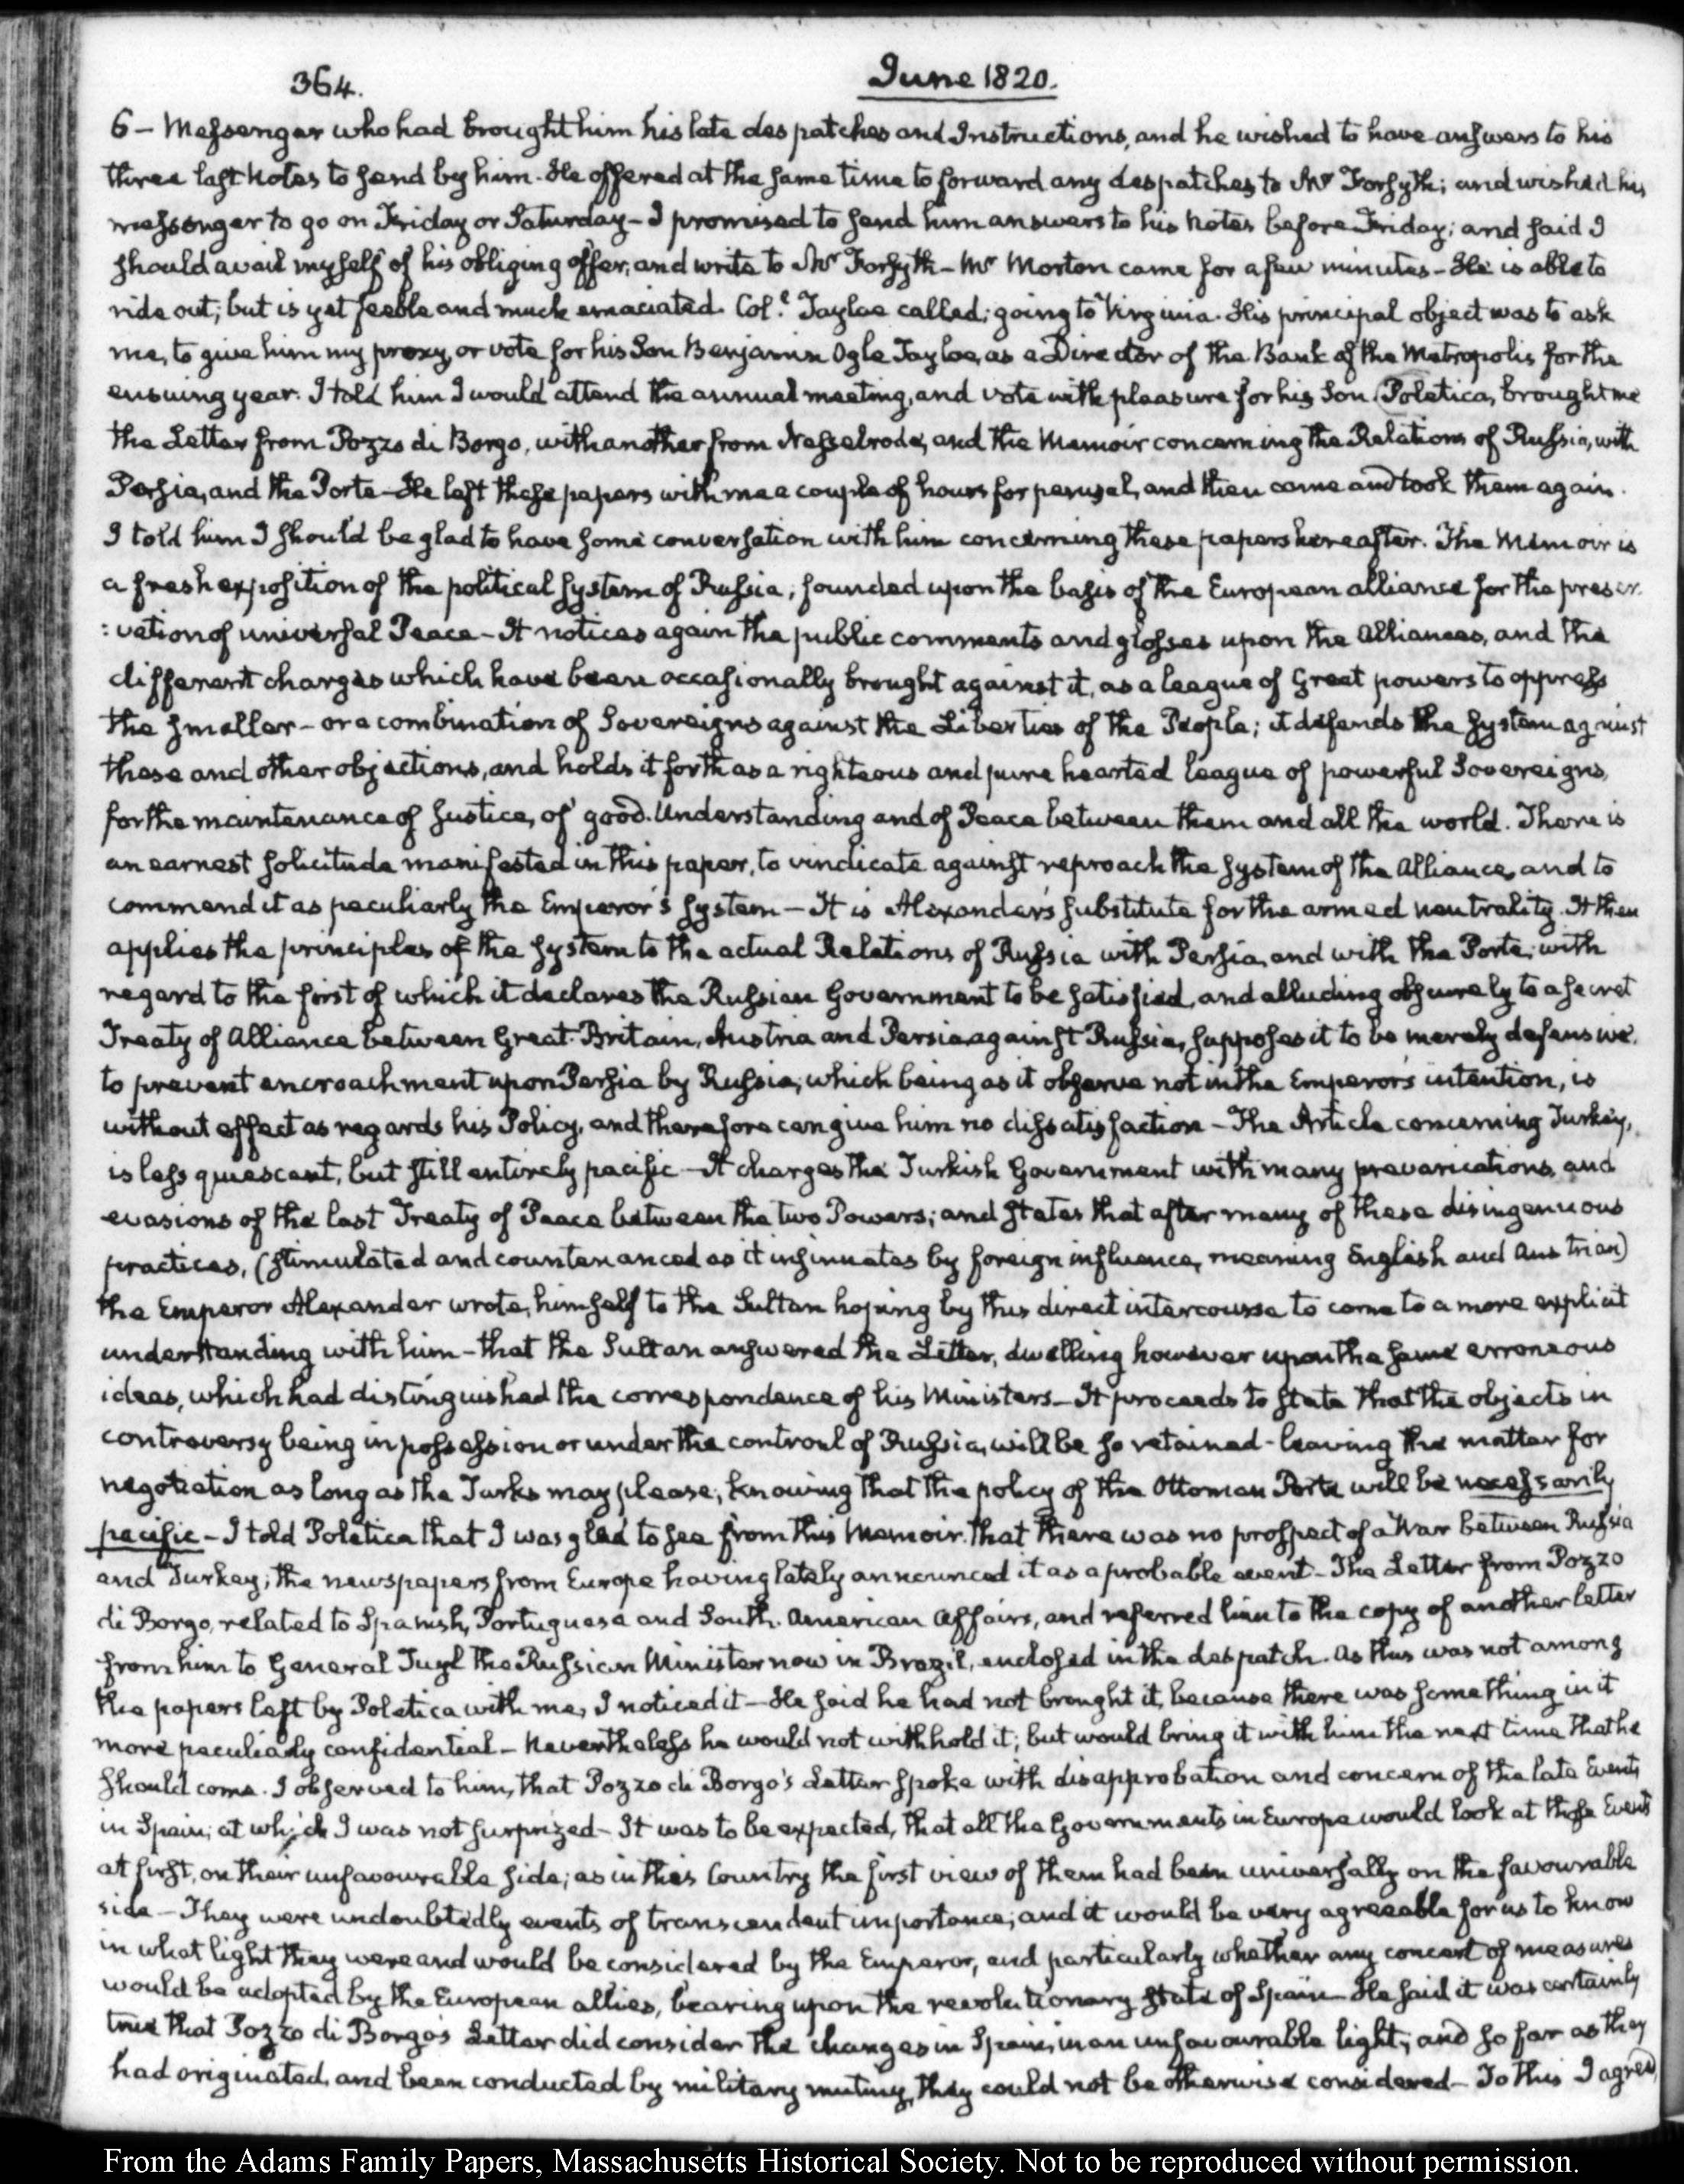 364.
June 1820.
6 - Messenger who had brought him his late despatches and Instructions, and he wished to have answers to his
three last Notes to send by him. He offered at the same time to forward any despatches to Mr Forsyth; and wished his
messenger to go on Friday or Saturday - I promised to send him answers to his Notes before Friday; and said I
should avail myself of his obliging offer, and write to Mr Forsyth - Mr Morton came for a few minutes - He is able to
ride out; but is yet feeble and much emaciated. Coll. Tayloe called; going to Virginia. His principal object was to ask
me, to give him my proxy, or vote for his Son Benjamin Ogle Tayloe, as a Director of the Bank of the Metropolis for the
ensuing year. I told him I would attend the annual meeting, and vote with pleasure for his Son (Poletica, brought me
the Letter from Pozzo di Borgo, with another from Nesselrode, and the Memoir concerning the Relations of Russia, with
Persia, and the Porte - He left these papers with me a couple of hours for perusal, and then came and took them again.
I told him I should be glad to have some conversation with him concerning these papers hereafter. The Memoir is
a fresh exposition of the political system of Russia; founded upon the basis of the European alliance for the preser.
:vation of universal Peace - It notices again the public comments and glosses upon the Alliances, and the
different charges which have been occasionally brought against it, as a league of Great powers to oppress
the smaller - or a combination of Sovereigns against the Liberties of the People; it defends the system against
these and other objections, and holds it forth as a righteous and pure hearted league of powerful Sovereigns,
for the maintenance of Justice, of good. Understanding and of Peace between them and all the world. There is
an earnest solicitude manifested in this paper, to vindicate against reproach the system of the Alliance, and to
commend it as peculiarly the Emperor's system - It is Alexander's substitute for the armed neutrality. It then
applies the principles of the system to the actual Relations of Russia with Persia, and with the Porte; with
regard to the first of which it declares the Russian Government to be satisfied, and alluding obscurely to a secret
Treaty of Alliance between Great-Britain, Austria and Persia, against Russia, supposes it to be merely defensive.
to prevent encroachment upon Persia by Russia; which being as it observe not in the Emperor's intention, is
without effect as regards his Policy, and therefore can give him no dissatisfaction - The Article concerning Turkey,
is less quiescent, but still entirely pacific - It charges the Turkish Government with many prevarications, and
evasions of the last Treaty of Peace between the two Powers; and states that after many of these disingenuous
practices, (stimulated and countenanced as it insinuates by foreign influence, meaning English and Austrian)
the Emperor Alexander wrote, himself to the Sultan hoping by this direct intercourse to come to a more explicit
understanding with him - that the Sultan answered the Letter, dwelling however upon the same erroneous
ideas, which had distinguished the correspondence of his Ministers - It proceeds to state that the objects in
controversy being in possession or under the controul of Russia, will be so retained - leaving the matter for
negotiation as long as the Turks may please; knowing that the policy of the Ottoman Porte will be necessarily
pacific - I told Poletica that I was glad to see from this Memoir. that there was no prospect of a War between Russia
and Turkey; the newspapers from Europe having lately announced it as a probable event - The Letter from Pozzo
di Borgo, related to Spanish, Portuguese and South. American Affairs, and referred him to the copy of another letter
from him to General Tuyl the Russian Minister now in Brazil, enclosed in the despatch. As this was not among
the papers left by Poletica with me, I noticed it - He said he had not brought it, because there was something in it
more peculiarly confidential - Nevertheless he would not withhold it; but would bring it with him the next time that he
should come. I observed to him, that Pozzo di Borgo's Letter spoke with disapprobation and concern of the late Events
in Spain; at which I was not surprized - It was to be expected, that all the Governments in Europe would look at those Events
at first, on their unfavourable side; as in this Country the first view of them had been universally on the favourable
side - They were undoubtedly events of transcendent importance; and it would be very agreeable for us to know
in what light they were and would be considered by the Emperor, and particularly whether any concert of measures
would be adopted by the European allies, bearing upon the revolutionary state of Spain - He said it was certainly
true that Pozzo di Borgo's Letter did consider the changes in Spain, in an unfavourable light; and so far as they
had originated, and been conducted by military mutiny, they could not be otherwise considered - To this I agreed,
From the Adams Family Papers, Massachusetts Historical Society. Not to be reproduced without permission.